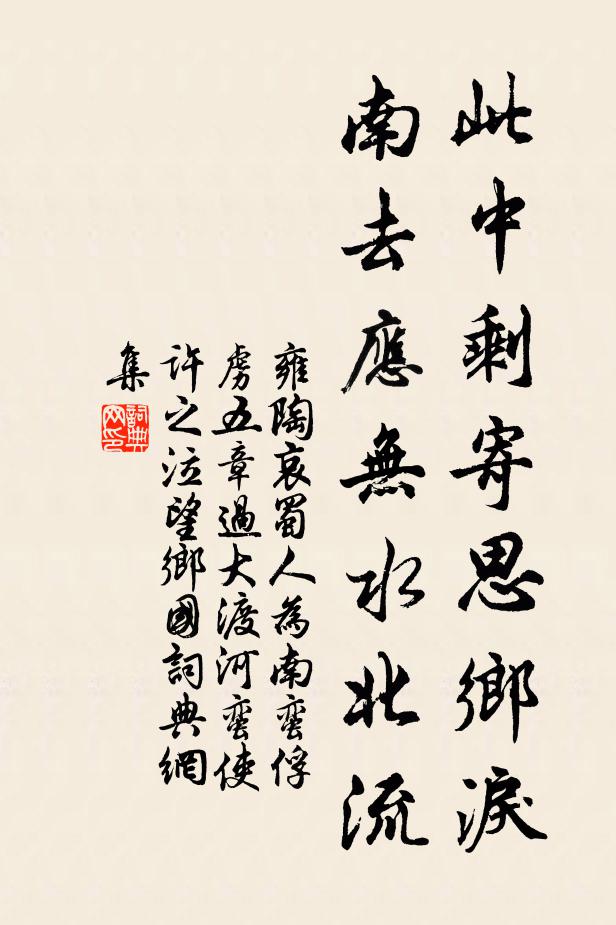 此中剩寄思鄉淚
南去應無水北流
雍陶哀蜀人為南蠻俘
虜五章過大渡河蠻使
許之泣望鄉國詞典網
集
詞典
网印